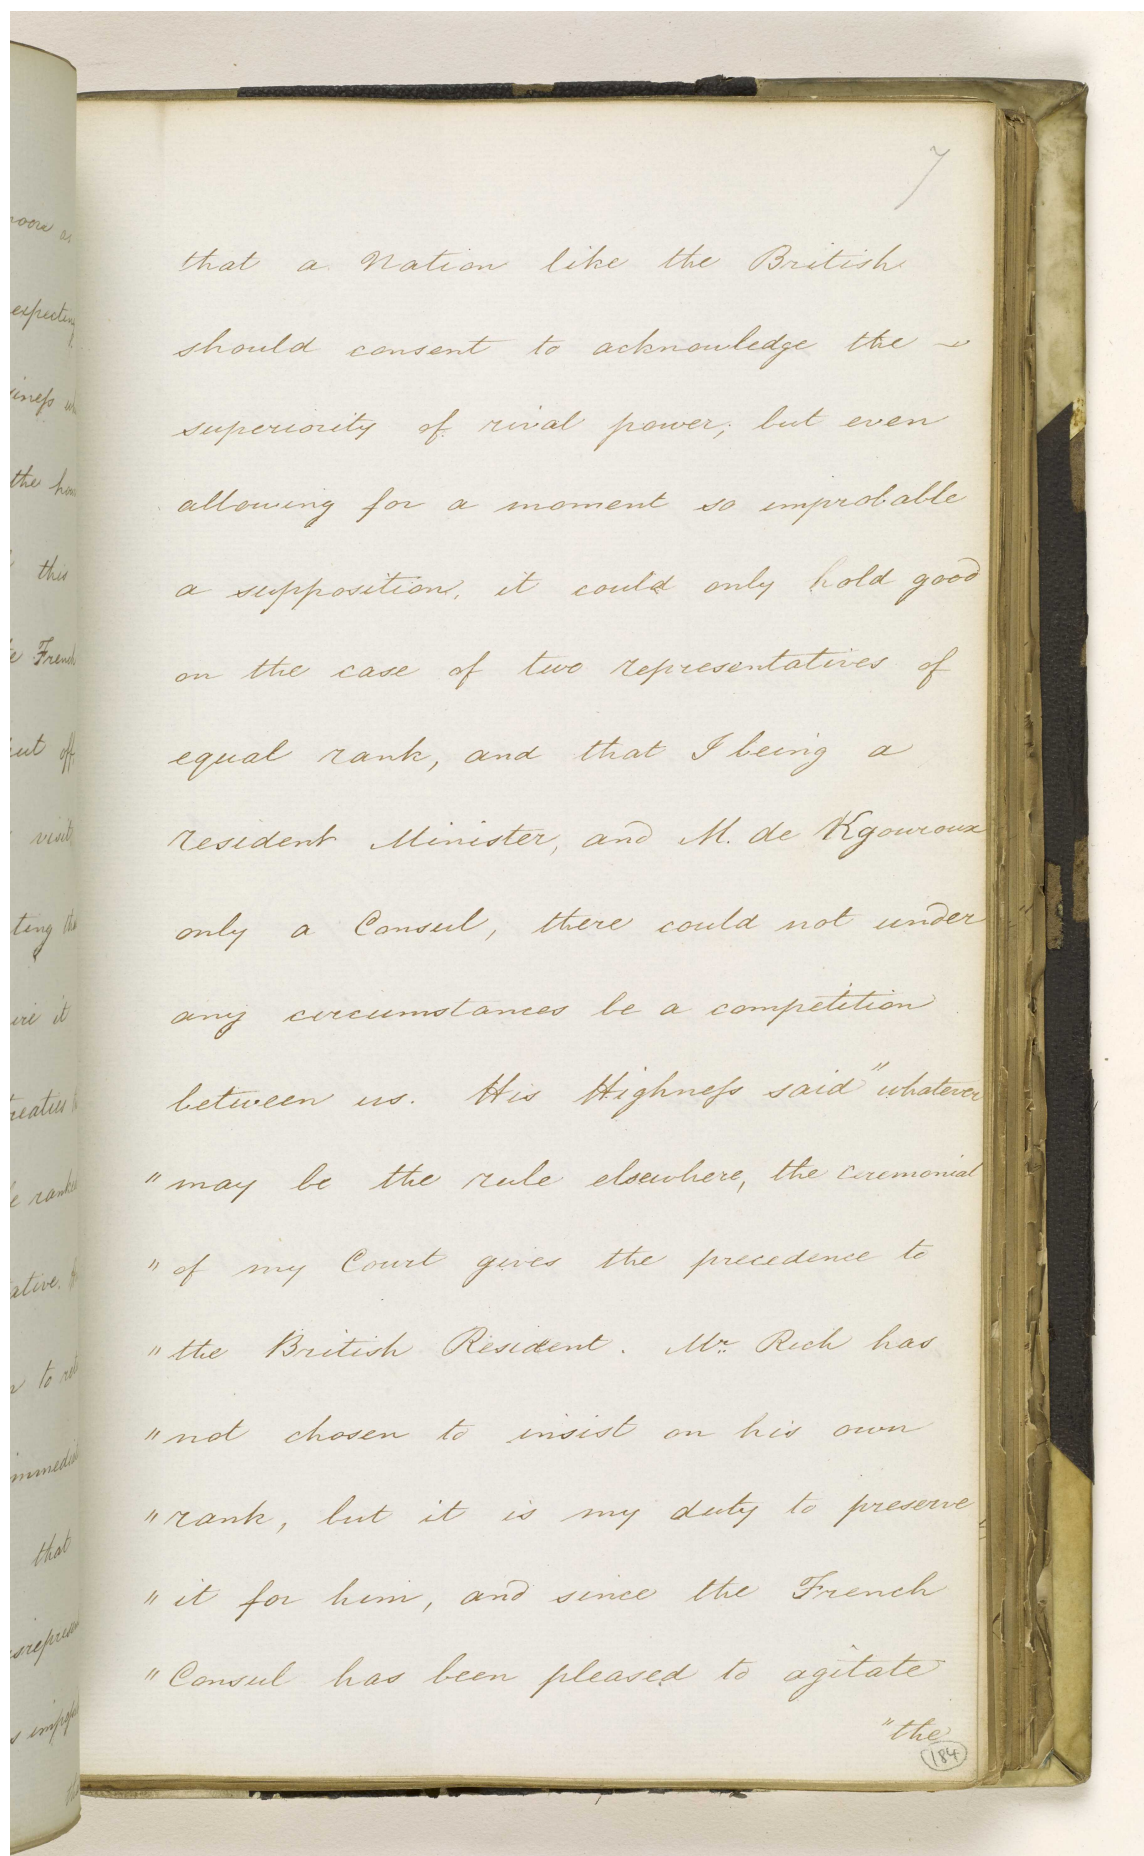 7
that a Nation like the British
should consent to acknowledge the
superiority of rival power; but even
allowing for a moment so improbable
a supposition, it could only hold good
on the case of two representatives of
equal rank, and that I being a
resident Minister, and M. de Kgouroux
only a Consul, there could not under
any circumstances be a competition
between us. His Highness said "whatever
"may be the rule elsewhere, the ceremonial
"of my Court gives the precedence to
"the British Resident. Mr. Rich has
"not chosen to insist on his own
"rank, but it is my duty to preserve
"it for him, and since the French
"Consul has been pleased to agitate
"the
184
expecting
the
this
French
off
visit
ting
it
to
that